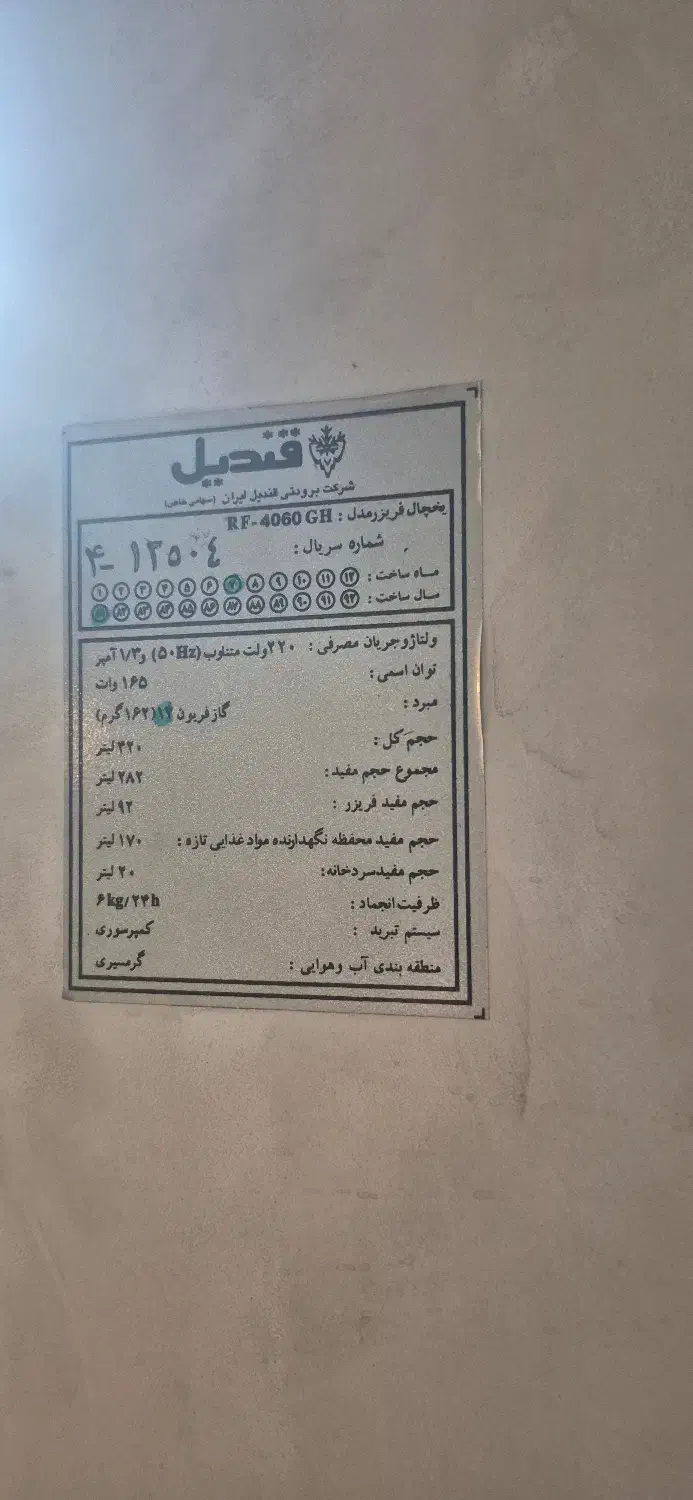 قندیل
شرکت برودتی قندیل ایران (سهامی خاص)
یخچال فریزر مدل : RF-4060 GH
شماره سریال : ۴-۱۳۵۰۴
ماه ساخت : ۱ ۲ ۳ ۴ ۵ ۶ ۷ ۸ ۹ ۱۰ ۱۱ ۱۲
سال ساخت : ۸۱ ۸۲ ۸۳ ۸۴ ۸۵ ۸۶ ۸۷ ۸۸ ۸۹ ۹۰ ۹۱ ۹۲
ولتاژ و جریان مصرفی : ۲۲۰ ولت متناوب (۵۰Hz) و ۱/۳ آمپر
توان اسمی : ۱۶۵ وات
مبرد : گاز فریون ۱۲ (۱۶۲ گرم)
حجم کل : ۳۲۰ لیتر
مجموع حجم مفید : ۲۸۲ لیتر
حجم مفید فریزر : ۹۲ لیتر
حجم مفید محفظه نگهدارنده مواد غذایی تازه : ۱۷۰ لیتر
حجم مفید سردخانه : ۲۰ لیتر
ظرفیت انجماد : ۶kg/۲۴h
سیستم تبرید : کمپرسوری
منطقه بندی آب و هوایی : گرمسیری